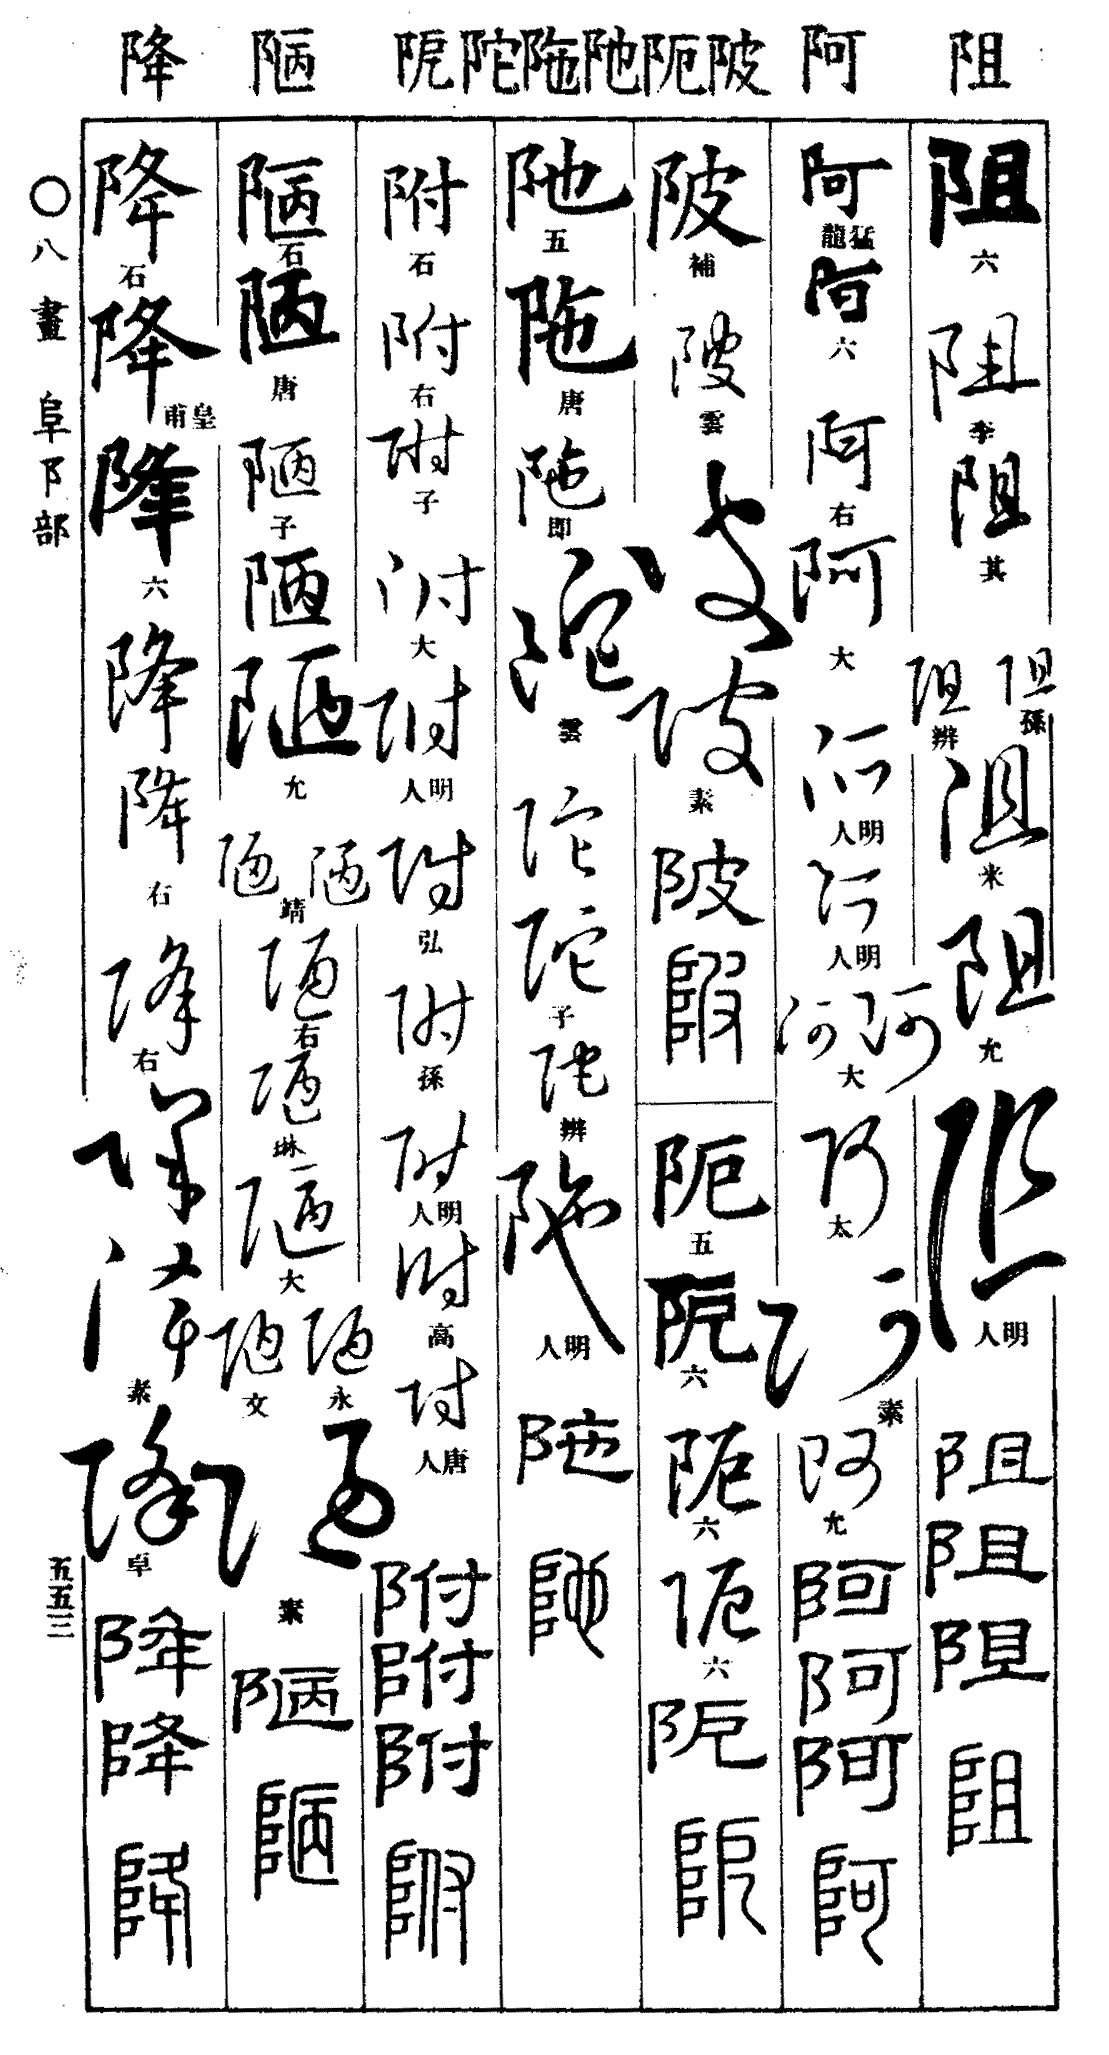 阻 阿 陂 阨 阤 陁 陀 阸 陋 降
阻 六
阻 李
阻 其
阻 孫
阻 辨
阻 米
阻 允
阻 明人
阻
阻
阻
阻
阿 猛龍
阿 六
阿 右
阿 大
阿 明人
阿 明人
阿 阿 大
阿 太
阿 素
阿 允
阿
阿
阿
阿
陂 補
陂 雲
陂
陂 素
陂
陂
阨 五
阨 六
阨 六
阨 六
阨
阨
阤 五
陁 唐
陁 即
陀 雲
陀
陀 子
陀 辨
陁 明人
陁
阤
附 石
附 右
附 子
附 大
附 明人
附 弘
附 孫
附 明人
附 高
附 唐人
附
附
附
附
陋 石
陋 唐
陋 子
陋
陋 允
陋 陋 靖
陋 右
陋 琳
陋 大
陋 永
陋 文
陋 素
陋
陋
降 石
降 皇甫
降 六
降
降 右
降 右
降
降 素
降 卓
降
降
降
〇八畫 阜阝部
五五三